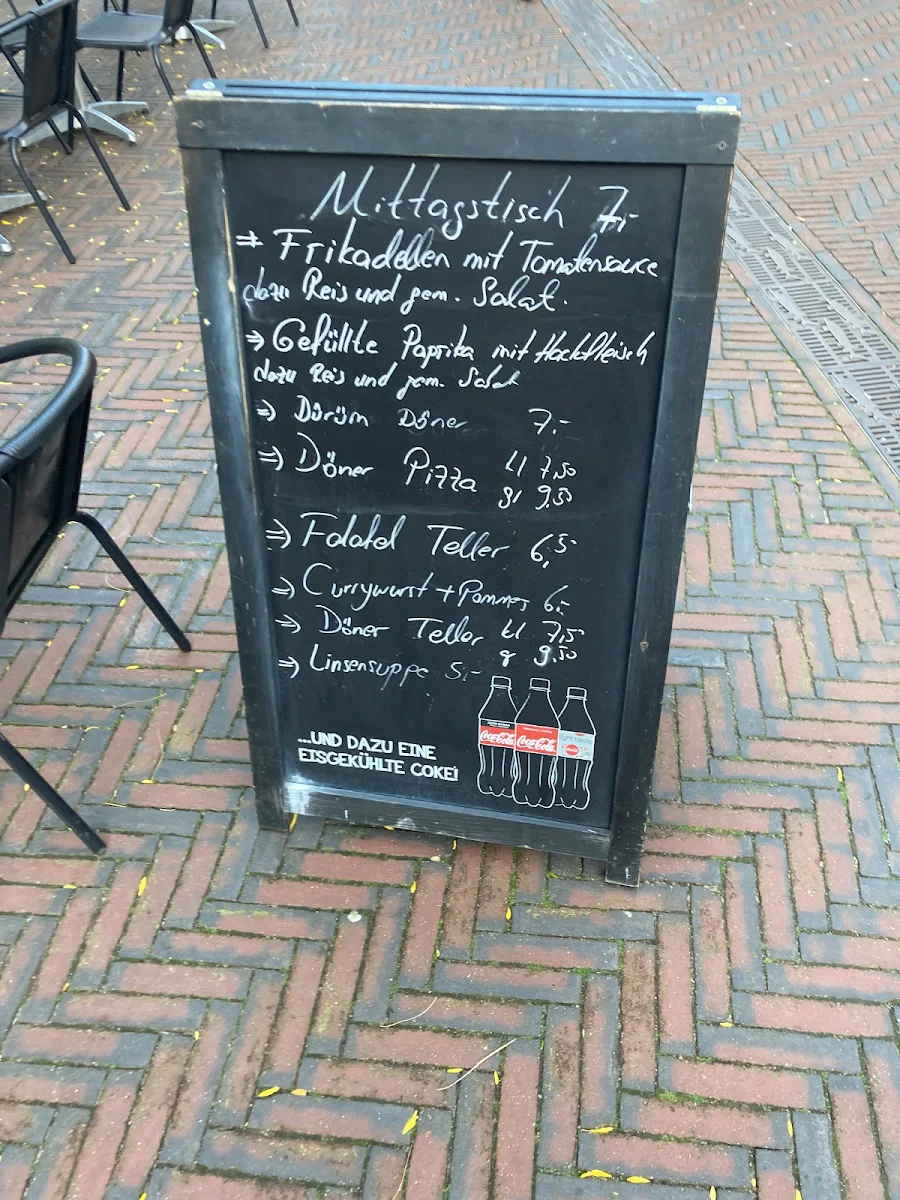 Mittagstisch 7,-
⇒ Frikadellen mit Tomatensauce
dazu Reis und gem. Salat.
⇒ Gefüllte Paprika mit Hackfleisch
dazu Reis und gem. Salat
⇒ Dürüm Döner 7,-
⇒ Döner Pizza kl 7,50
gr 9,50
⇒ Falafel Teller 6,5-
⇒ Currywurst + Pommes 6,-
⇒ Döner Teller kl 7,5
g 9,50
⇒ Linsensuppe 5,-
...UND DAZU EINE
EISGEKÜHLTE COKE!
Coca-Cola Coca-Cola